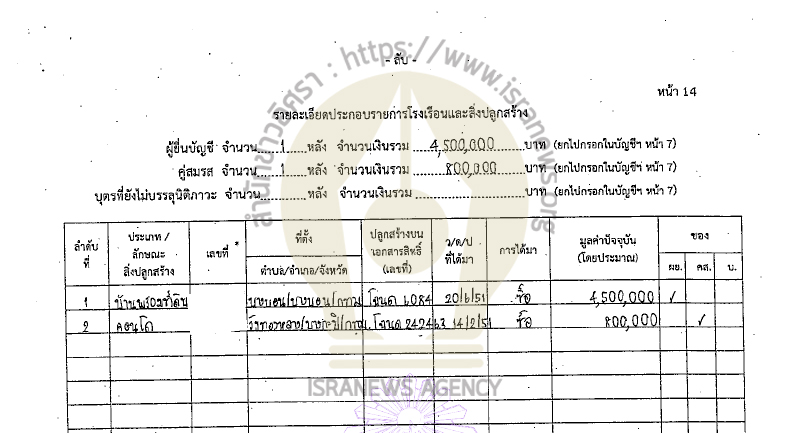 - ลับ -
หน้า 14
รายละเอียดประกอบรายการโรงเรือนและสิ่งปลูกสร้าง
ผู้ยื่นบัญชี จำนวน.....1.....หลัง จำนวนเงินรวม 4,500,000 บาท (ยกไปกรอกในบัญชีฯ หน้า 7)
คู่สมรส จำนวน.....1.....หลัง จำนวนเงินรวม 800,000 บาท (ยกไปกรอกในบัญชีฯ หน้า 7)
บุตรที่ยังไม่บรรลุนิติภาวะ จำนวน..........หลัง จำนวนเงินรวม..........บาท (ยกไปกรอกในบัญชีฯ หน้า 7)
ลำดับที่ ประเภท / ลักษณะ สิ่งปลูกสร้าง เลขที่ * ที่ตั้ง ตำบล/อำเภอ/จังหวัด ปลูกสร้างบนเอกสารสิทธิ์ (เลขที่) ว/ด/ป ที่ได้มา การได้มา มูลค่าปัจจุบัน (โดยประมาณ) ของ ผย. คส. บ.
1 บ้านพร้อมที่ดิน บางบอน/บางบอน/กทม โฉนด 6084 20/6/51 ซื้อ 4,500,000 /
2 คอนโด วังทองหลาง/บางกะปิ/กทม. โฉนด 242463 14/2/51 ซื้อ 800,000 /
สำนักข่าวอิศรา : https://www.isranews.org
ISRANEWS AGENCY